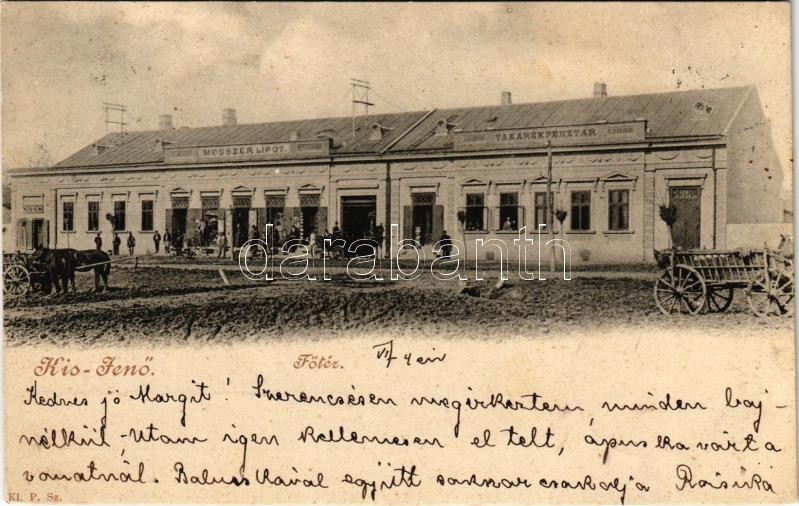 MOSSZER LIPÓT.
TAKARÉKPÉNZTÁR
darabanth.com
Kis-Jenő.
Főtér.
VI 4 én
Kedves jó Margit! Szerencsésen megérkeztem minden baj-
nélkül. Utam igen kellemesen el telt, ápuska várt a
vonatnál. Baluskával együtt sokszor csókolja Rózsika
Kl. P. Sz.